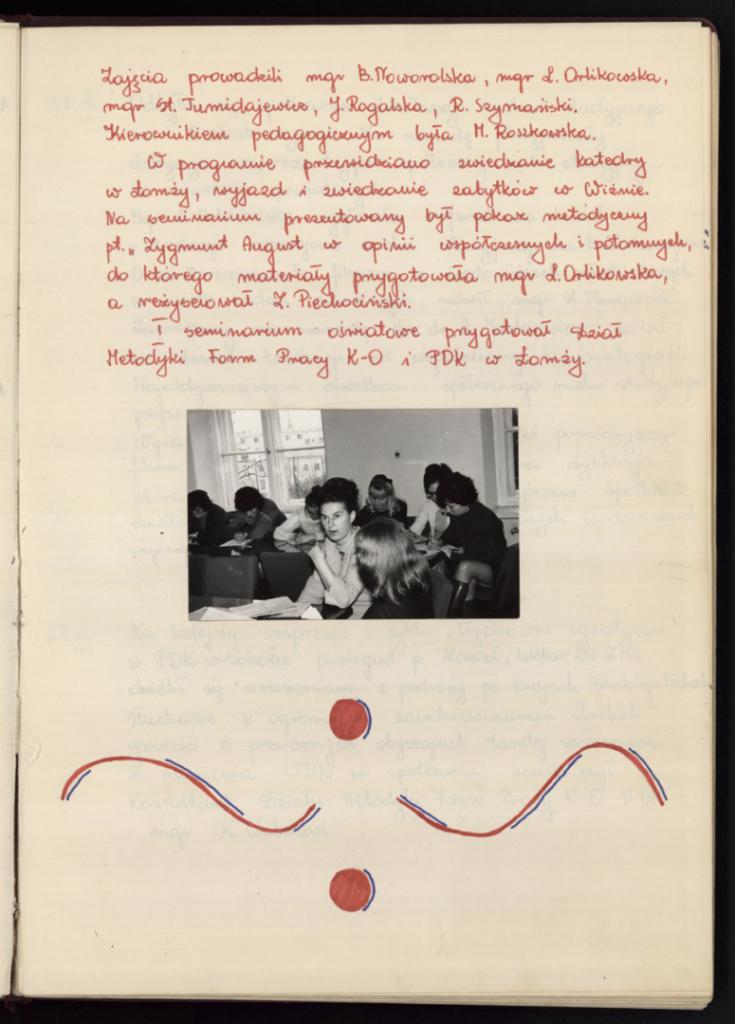 Zajęcia prowadzili mgr B. Noworolska, mgr L. Orlikowska,
mgr St. Tumidajewicz, J. Rogalska R. Szymański.
Kierownikiem pedagogicznym była M. Roszkowska.
W programie przewidziano zwiedzanie katedry
w Łomży, wyjazd i zwiedzanie zabytków w Wiźnie.
Na seminarium prezentowany był pokaz metodyczny
pt. „Zygmunt August w opinii współczesnych i potomnych,
do którego materiały przygotowała mgr L. Orlikowska,
a reżyserował Z. Piechociński.
I seminarium oświatowe przygotował Dział
Metodyki Form Pracy K-O i PDK w Łomży.